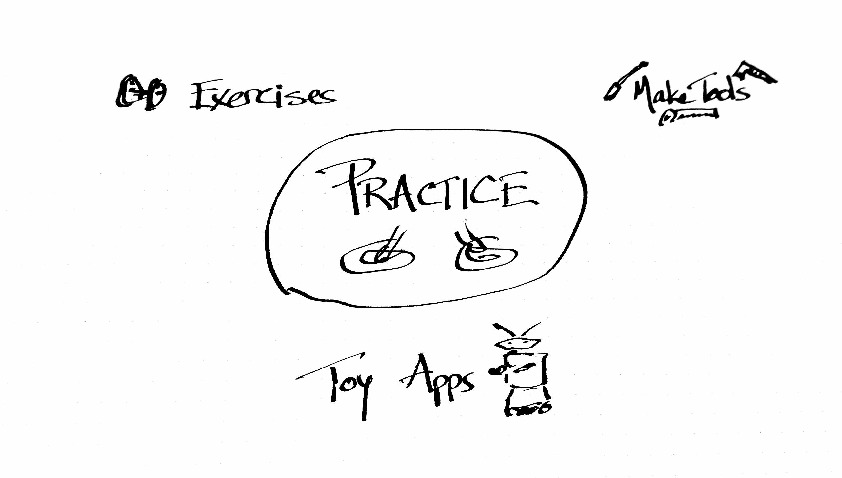 Exercises
Make Tools
PRACTICE
Toy Apps